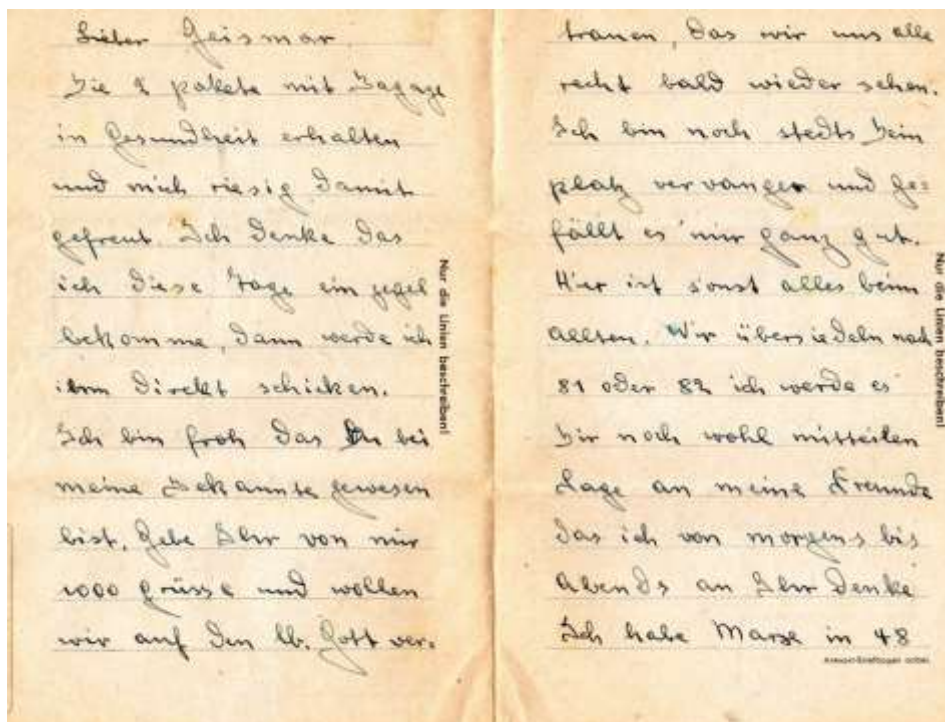 Lieber Geismar.
Die 2 pakete mit Bagage
in Gesundheit erhalten
und mich riesig damit
gefreut. Ich denke das
ich diese Tage ein zegel
bekomme, dann werde ich
ihm direkt schicken.
Ich bin froh das Du bei
meine Bekannte gewesen
bist. Gebe Ihr von mir
1000 grüsse und wollen
wir auf den lb. Gott ver-
Nur die Linien beschreiben!
trauen, das wir uns alle
recht bald wieder sehen.
Ich bin noch stedts Dein
platz vervangen und ge=
fällt es mir ganz gut.
Hier ist sonst alles beim
allten. Wir übersiedeln nach
81 oder 82 ich werde es
Dir noch wohl mitteilen
Sage an meine Freunde
das ich von morgens bis
abends an Ihr denke
Ich habe in 48
Nur die Linien beschreiben!
Antwort-Briefbogen anbei.